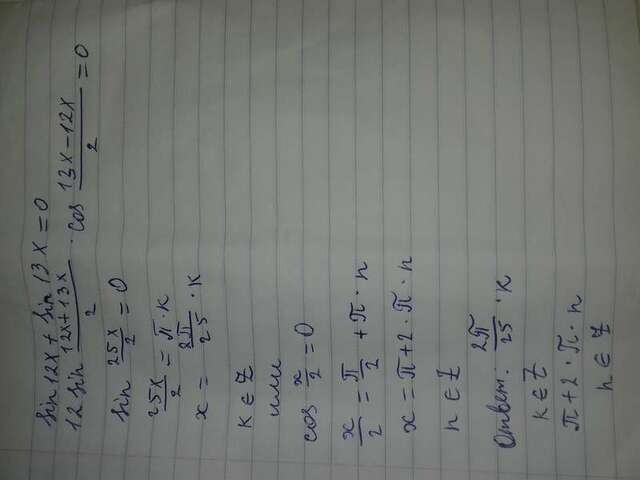 sin 12x + sin 13x = 0
12 sin (12x+13x)/2 · cos (13x-12x)/2 = 0
sin 25x/2 = 0
25x/2 = π · k
x = 2π/25 · k
k ∈ Z
или
cos x/2 = 0
x/2 = π/2 + π · n
x = π+2 · π · n
n ∈ Z
Ответ: 2π/25 · k
k ∈ Z
π+2 · π · n
n ∈ Z